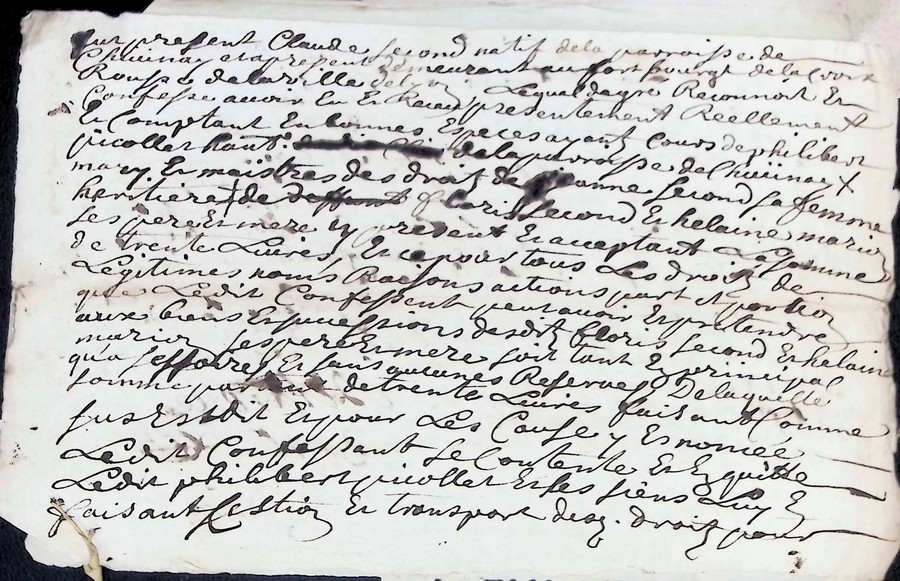 fut present Claude second natif de la parroisse de
Chuinay et a present demeurant au fort bourgt de la Croix
Rousse de la ville de Lequel de gre Reconnoit Et
Confesse auoir Eu Et Receu presentement Reellement
Et Comptant En bonnes Especes ayant Cours de philibert
picollet de la parroisse de Chuinay
mary Et maistres des droitz de second sa femme
heritiere de deffunt floris second Et helaine marion
ses pere Et mere Cy present Et acceptant La somme
de trente Liures Et ce pour tous Les droitz de
Legitimes noms Raisons actions part Et portion
que Ledit Confessent peut auoir Et pretendre
aux biens Et successions desdit floris second Et helaine
marion ses pere Et mere soit tant En principal
qu'a sessoires Et sans aucunes Reserues De laquelle
somme de trente Liures faisant Comme
sus Est dit Et pour Les Cause y Es nomée
Ledit Confessant se Contente Et En quitte
Ledit philibert picollet Et ses siens Luy En
faisant Cestion Et transport desd. droitz pour